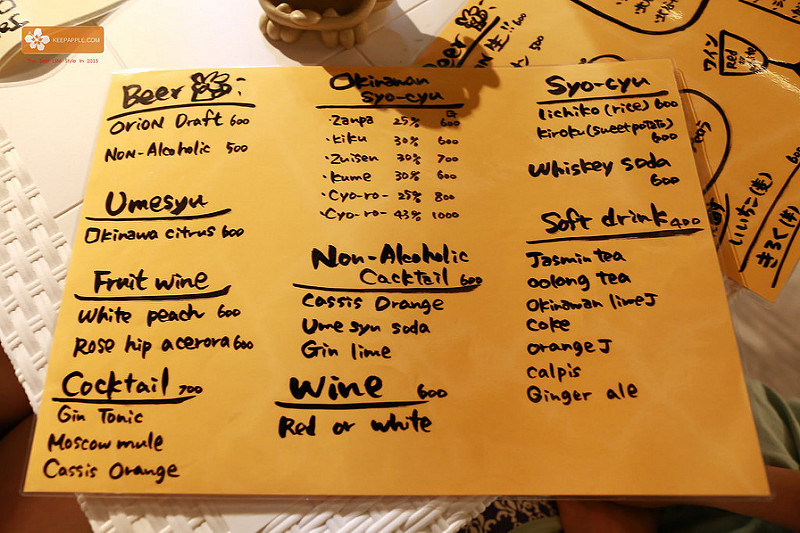 KEEPAPPLE.COM
Beer
Orion Draft 600
Non-Alcoholic 500
Umesyu
Okinawa citrus 600
Fruit wine
White peach 600
Rose hip acerora 600
Cocktail 700
Gin Tonic
Moscow mule
Cassis Orange
Okinawan
Syo-cyu
・Zanpa 25% 600
・kiku 30% 600
・Zuisen 30% 700
・kume 30% 600
・Cyo-ro- 25% 800
・Cyo-ro- 43% 1000
Non-Alcoholic
Cacktail 600
Cassis Orange
Umesyu soda
Gin lime
Wine 600
Red or white
Syo-cyu
Iichiko (rice) 600
kiroku (sweet potato)
600
Whiskey soda
600
Soft drink 400
Jasmin tea
oolong tea
Okinawan lime J
Coke
orange J
calpis
Ginger ale
Beer
ワイン
Red
White
いいちこ(麦)
きろく(芋)